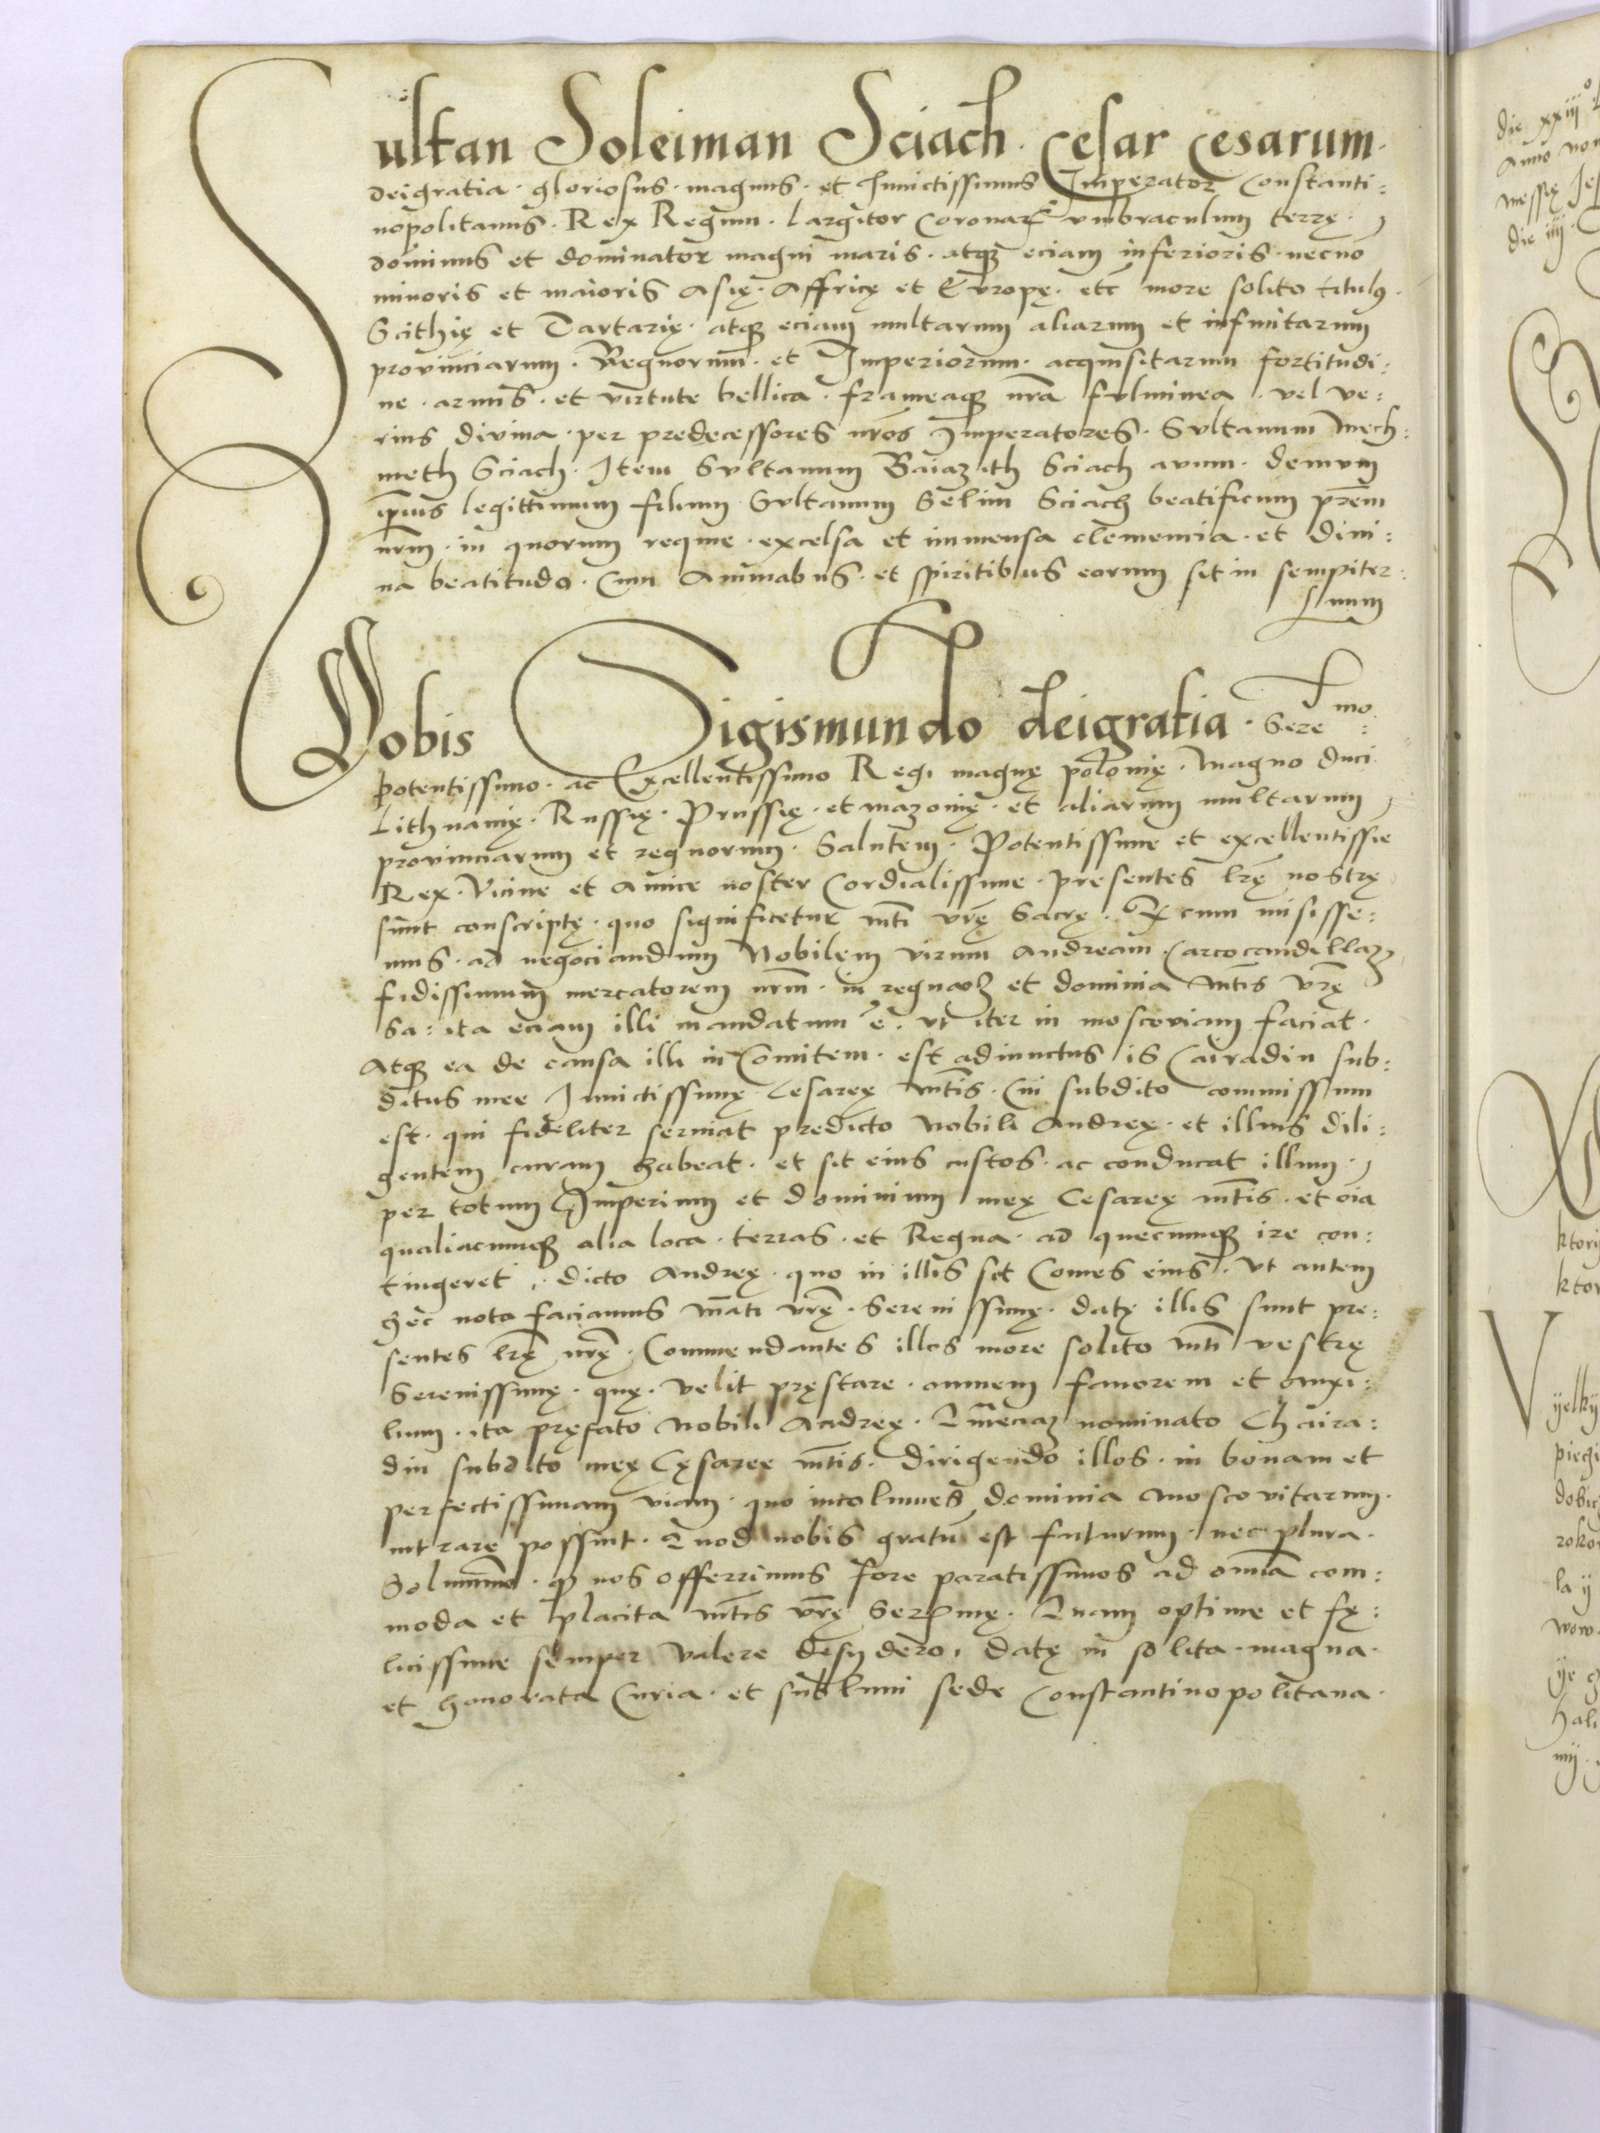 Sultan Soleiman Sciach. Cesar Cesarum.
deigratia. gloriosus. magnus. et Inuictissimus Imperator Constanti:
nopolitanus. Rex Regum. Largitor Coronaꝝ vmbraculum terrę.
dominus et dominator magni maris. atqꝫ eciam inferioris. necnō
minoris et maioris Asię. Affricę et Evropę. etc̄ more solito titulꝰ.
Scithię et Tartarię. atqꝫ eciam multarum aliarum et infinitarum
provinciarum. Regnorum. et Imperiorum. acquisitarum fortitudi:
ne. armis. et virtute bellica. frameaqꝫ nr̄a fvlminea. vel ve:
rius divina. per predecessores nr̄os Imperatores. Svltanum Mech:
meth Sciach. Item Svltanum Baiazith Sciach auum. demvm
ip̄ius legittimum filium Svltanum Selim Sciach beatificum pr̄em
nr̄m. in quorum reqme. excelsa et immensa clemencia. et diui:
na beatitudo. Cum Animabus. et spiritibus eorum sit in sempiter:
num
Vobis Sigismundo deigratia. Sere mo:
potentissimo. ac Excellentissimo Regi magnę polonię. Magno duci
Lithuanię. Russię. Prussię. et mazouię. et aliarum multarum
provinciarum et regnorum. Salutem. Potentissime et excellentissīe
Rex. Vicine et Amice noster Cordialissime. presentes lr̄ę nostrę
sunt conscriptę. quo significetur mt̄i vr̄ę Sacrę. Ꝙ cum misisse:
mus. ad negociandum Nobilem virum Andream. Carcocandellaꝫ
fidissimum mercatorem nr̄m. in regna et dominia mt̄is vr̄ę
Sa: ita eciam illi mandatum ē. vt iter in moscoviam faciat.
Atqꝫ ea de causa illi in Comitem. est adiunctus is Cairadin sub:
ditus mee Inuictissimę Cesareę mt̄is. Cui subdito commissum
est. qui fideliter seruiat predicto Nobili Andreę. et illius dili:
gentem curam habeat. et sit eius custos. ac conducat illum.
per totum Imperium et dominium meę Cesareę mt̄is. et oīa
qualiacumqꝫ alia loca. terras. et Regna. ad quecumqꝫ ire con:
tingeret. dicto Andreę. quo in illis sit Comes eius. Vt autem
hęc nota faciamus mat̄i vr̄ę. Serenissimę. datę illis sunt pre:
sentes lr̄ę nr̄ę. Commendantes illos more solito mt̄i vestrę
Serenissimę. quę. velit pręstare. omnem fauorem et auxi:
lium. ita pręfato Nobili Andreę. nominato Chaira:
din subdito meę Cęsaree mt̄is. dirigendo illos. in bonam et
perfectissimam viam. quo incolumes dominia Moscovitarum.
intrare possint. Quod nobis gratū est futurum. nec plura.
Solummō. qꝫ nos offerrimus fore paratissimos ad omīa com:
moda et placita mt̄is vr̄ę Ser mę. Quam optime et fę:
licissime semper valere desydero. datę in solita. magna.
et honorata Curia. et sublimi sede Constantinopolitana.